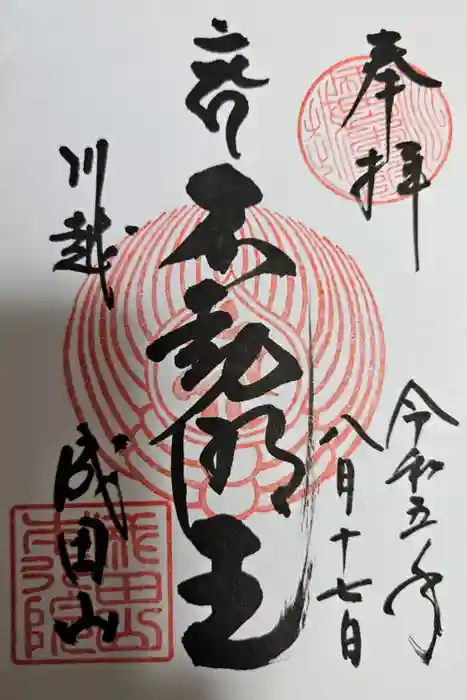 奉拝
令和五年
八月十七日
不動明王
川越
成田山